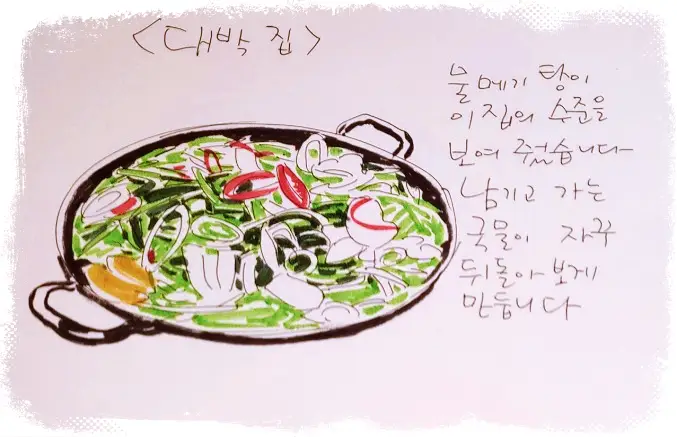 <대박 집>
물메기 탕이
이 집의 수준을
보여 주었습니다
남기고 가는
국물이 자꾸
뒤돌아 보게
만듭니다